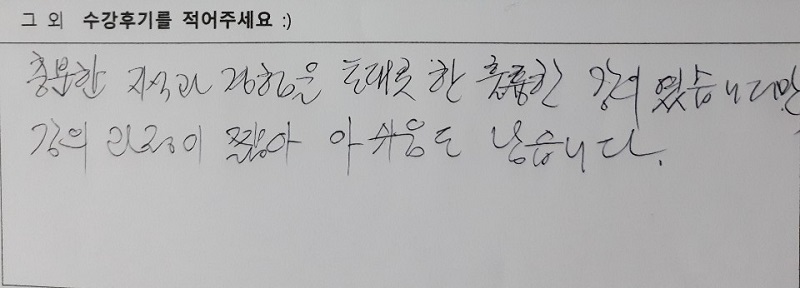 그 외 수강후기를 적어주세요 :)
충분한 지식과 경험을 토대로 한 훌륭한 강의 였습니다만
강의 일정이 짧아 아쉬움도 남습니다.